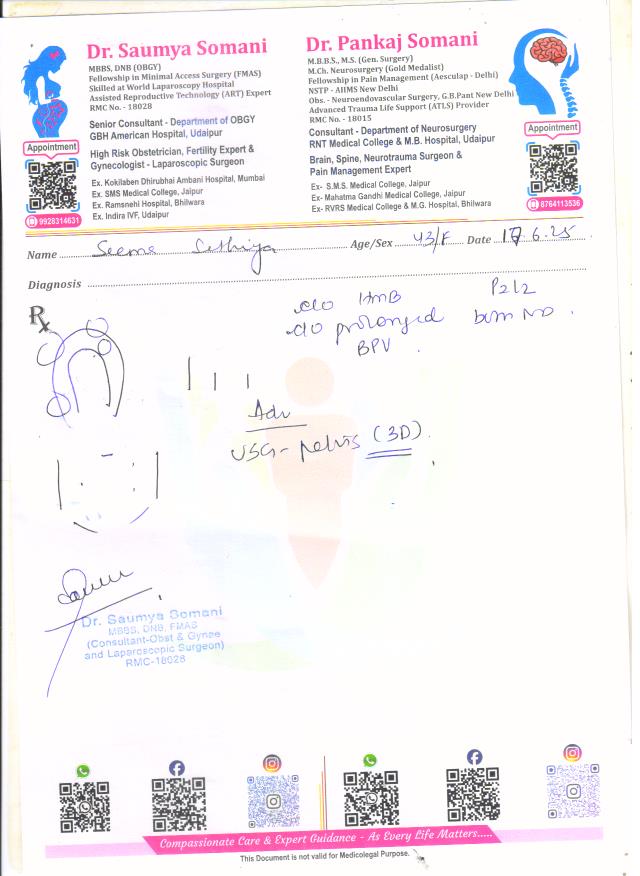 Dr. Saumya Somani
MBBS, DNB (OBGY)
Fellowship in Minimal Access Surgery (FMAS)
Skilled at World Laparoscopy Hospital
Assisted Reproductive Technology (ART) Expert
RMC No. - 18028
Senior Consultant - Department of OBGY
GBH American Hospital, Udaipur
High Risk Obstetrician, Fertility Expert &
Gynecologist - Laparoscopic Surgeon
Ex. Kokilaben Dhirubhai Ambani Hospital, Mumbai
Ex. SMS Medical College, Jaipur
Ex. Ramsnehi Hospital, Bhilwara
Ex. Indira IVF, Udaipur
Appointment
9928314631
Dr. Pankaj Somani
M.B.B.S., M.S. (Gen. Surgery)
M.Ch. Neurosurgery (Gold Medalist)
Fellowship in Pain Management (Aesculap - Delhi)
NSTP - AIIMS New Delhi
Obs. - Neuroendovascular Surgery, G.B.Pant New Delhi
Advanced Trauma Life Support (ATLS) Provider
RMC No. - 18015
Consultant - Department of Neurosurgery
RNT Medical College & M.B. Hospital, Udaipur
Brain, Spine, Neurotrauma Surgeon &
Pain Management Expert
Ex- S.M.S. Medical College, Jaipur
Ex- Mahatma Gandhi Medical College, Jaipur
Ex- RVRS Medical College & M.G. Hospital, Bhilwara
Appointment
8764113536
Name Seema Sethiya Age/Sex 43/F Date 17.6.25
Diagnosis
Rx
c/o HMB P2L2
c/o prolonged both ND.
BPV.
Adv
USG - pelvis (3D)
Dr. Saumya Somani
MBBS, DNB, FMAS
(Consultant-Obst & Gynae
and Laparoscopic Surgeon)
RMC-18028
Compassionate Care & Expert Guidance - As Every Life Matters.....
This Document is not valid for Medicolegal Purpose.